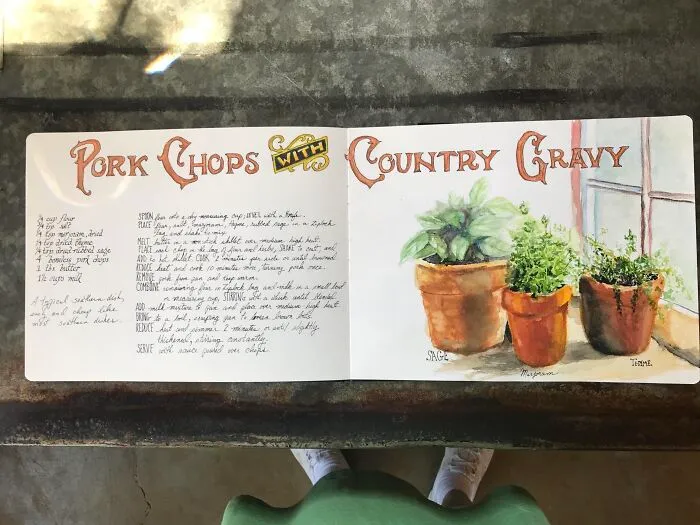 PORK CHOPS WITH COUNTRY GRAVY
¼ cup flour
¼ tsp salt
¼ tsp marjoram, dried
¼ tsp dried thyme
¼ tsp dried rubbed sage
4 boneless pork chops
1 tbs butter
1½ cups milk
A typical southern dish,
easy and cheap like
most southern dishes.
SPOON flour into a dry measuring cup, LEVEL with a knife.
PLACE flour, salt, marjoram, thyme, rubbed sage in a Ziplock
bag and shake to mix.
MELT butter in a non stick skillet over medium high heat.
PLACE each chop in the bag of flour and herbs, SHAKE to coat, and,
ADD to hot skillet. COOK 2 minutes per side or until browned.
REDUCE heat and cook 10 minutes more, turning pork once.
REMOVE pork from pan and keep warm.
COMBINE remaining flour in Ziplock bag and milk in a small bowl
or measuring cup, STIRRING with a whisk until blended.
ADD milk mixture to pan and place over medium high heat.
BRING to a boil, scraping pan to loosen brown bits.
REDUCE heat and simmer 2 minutes or until slightly
thickened, stirring constantly.
SERVE with sauce poured over chops.
SAGE
Marjoram